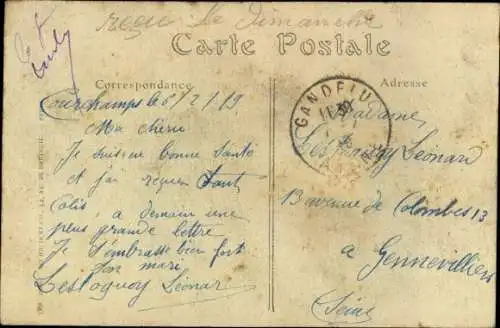 reçu le dimanche
Carte Postale
Correspondance
Adresse
Courchamps le 6/2/19
Ma chérie
Je suis en bonne Santé
et j'ai reçu ton
Colis, a demain une
plus grande lettre
Je t'embrasse bien fort
Ton mari
Lestoquoy Léonar
GANDELU
Madame
Lestoquoy Léonard
13 avenue de Colombes 13
a Gennevilliers
(Seine)